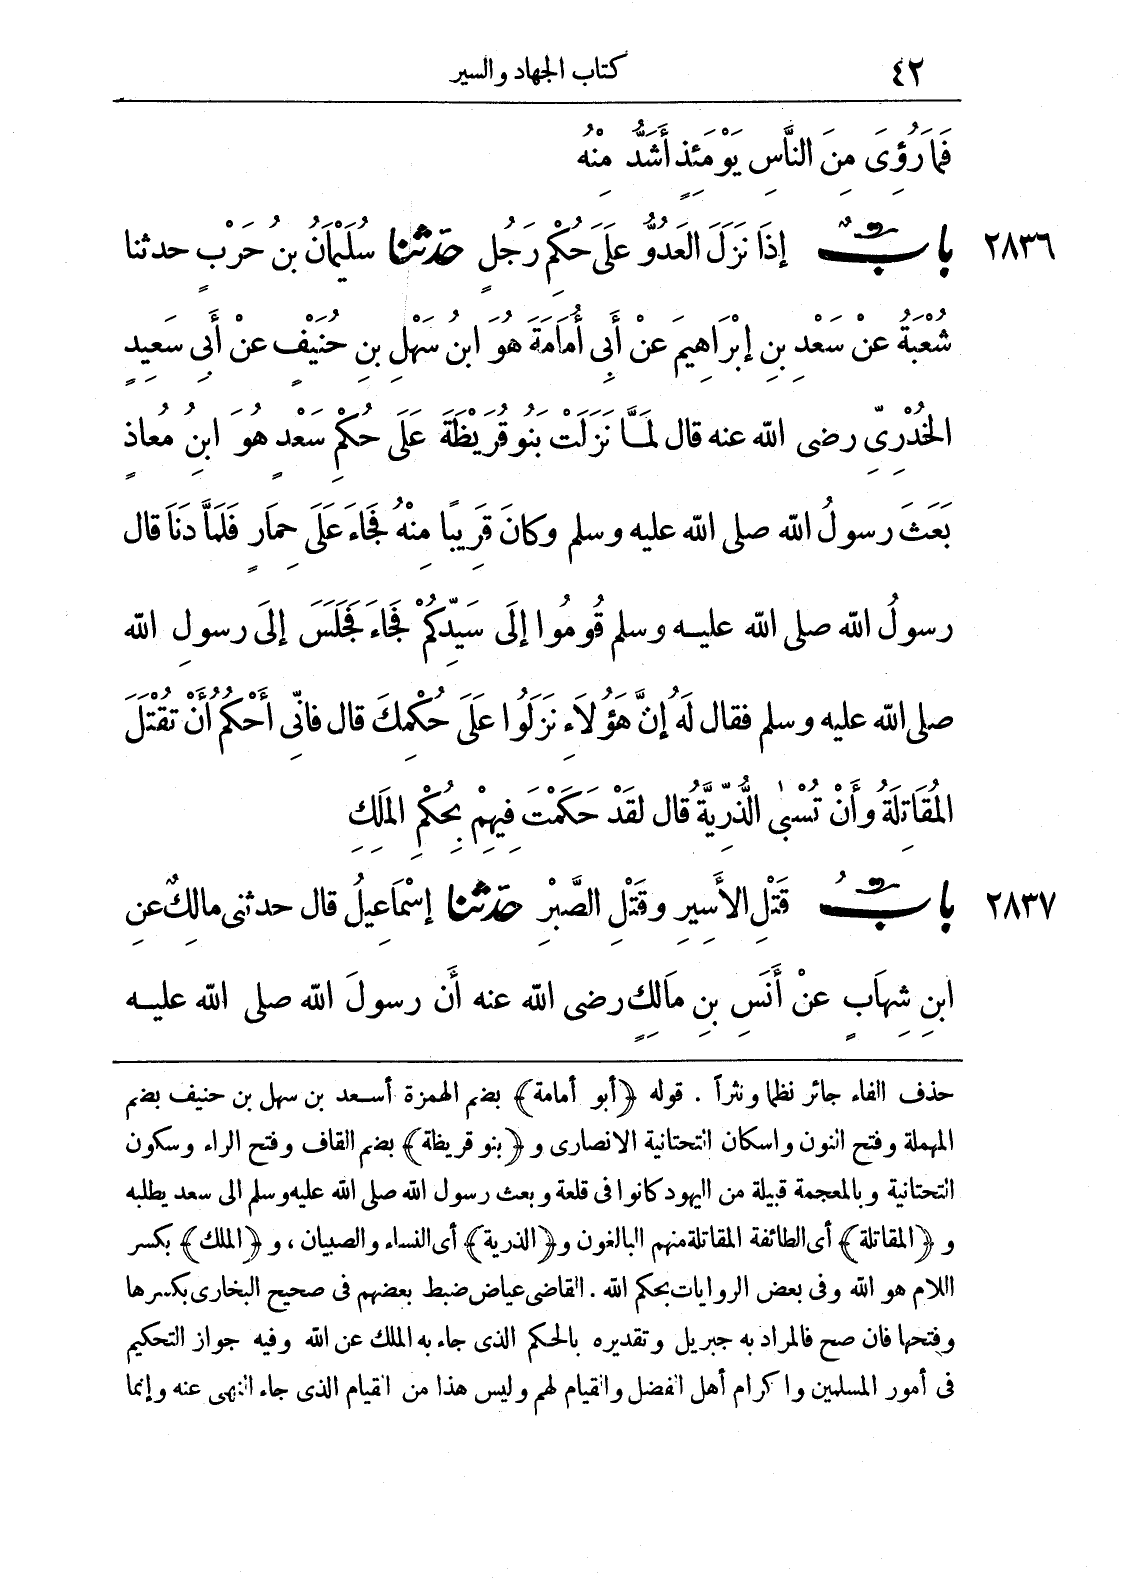 ٤٢ كتاب الجهاد والسير
فَمَا رُؤِىَ مِنَ النَّاسِ يَوْمَئِذٍ أَشَدُّ مِنْهُ
٢٨٣٦ بابٌ إِذَا نَزَلَ العَدُوُّ عَلَى حُكْمِ رَجُلٍ حدّثنا سُلَيْمَانُ بنُ حَرْبٍ حدثنا
شُعْبَةُ عَنْ سَعْدِ بنِ إِبْرَاهِيمَ عَنْ أَبِى أُمَامَةَ هُوَ ابنُ سَهْلِ بنِ حُنَيْفٍ عَنْ أَبِى سَعِيدٍ
الخُدْرِىِّ رضى الله عنه قال لَمَّا نَزَلَتْ بَنُو قُرَيْظَةَ عَلَى حُكْمِ سَعْدٍ هُوَ ابنُ مُعاذٍ
بَعَثَ رسولُ الله صلى الله عليه وسلم وكانَ قَرِيبًا مِنْهُ فَجَاءَ عَلَى حِمَارٍ فَلَمَّا دَنَا قال
رسولُ الله صلى الله عليه وسلم قُومُوا إِلَى سَيِّدِكُمْ فَجَاءَ فَجَلَسَ إِلَى رسولِ الله
صلى الله عليه وسلم فقال لَهُ إِنَّ هَؤُلَاءِ نَزَلُوا عَلَى حُكْمِكَ قال فانِّى أَحْكُمُ أَنْ تُقْتَلَ
المُقَاتِلَةُ وأَنْ تُسْبَى الذُّرِّيَّةُ قال لقَدْ حَكَمْتَ فِيهِمْ بِحُكْمِ المَلِكِ
٢٨٣٧ بابُ قَتْلِ الأَسِيرِ وقَتْلِ الصَّبْرِ حدّثنا إِسْمَاعِيلُ قال حدثنى مالِكٌ عنِ
ابنِ شِهَابٍ عَنْ أَنَسِ بنِ مَالِكٍ رضى الله عنه أَن رسولَ الله صلى الله عليه
حذف الفاء جائز نظما ونثراً . قوله ﴿أبو أمامة﴾ بضم الهمزة أسعد بن سهل بن حنيف بضم
المهملة وفتح النون واسكان التحتانية الانصارى و﴿بنو قريظة﴾ بضم القاف وفتح الراء وسكون
التحتانية وبالمعجمة قبيلة من اليهود كانوا فى قلعة وبعث رسول الله صلى الله عليه وسلم الى سعد يطلبه
و﴿المقاتلة﴾ أى الطائفة المقاتلة منهم البالغون و﴿الذرية﴾ أى النساء والصبيان ، و﴿الملك﴾ بكسر
اللام هو الله وفى بعض الروايات بحكم الله . القاضى عياض ضبط بعضهم فى صحيح البخارى بكسرها
وفتحها فان صح فالمراد به جبريل وتقديره بالحكم الذى جاء به الملك عن الله وفيه جواز التحكيم
فى أمور المسلمين واكرام أهل الفضل والقيام لهم وليس هذا من القيام الذى جاء النهى عنه وإنما